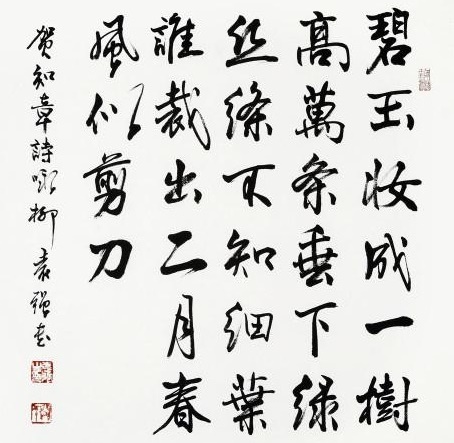 碧玉妆成一樹
髙萬条垂下绿
丝绦不知细葉
誰裁出二月春
風似剪刀
贺知章詩咏柳 袁强书